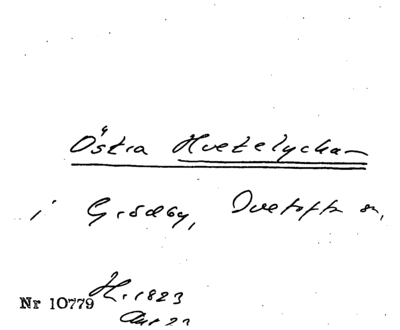 Östra Hvetelyckan
i Grödby, Tvetofta sn,
Nr 10779 H. 1823